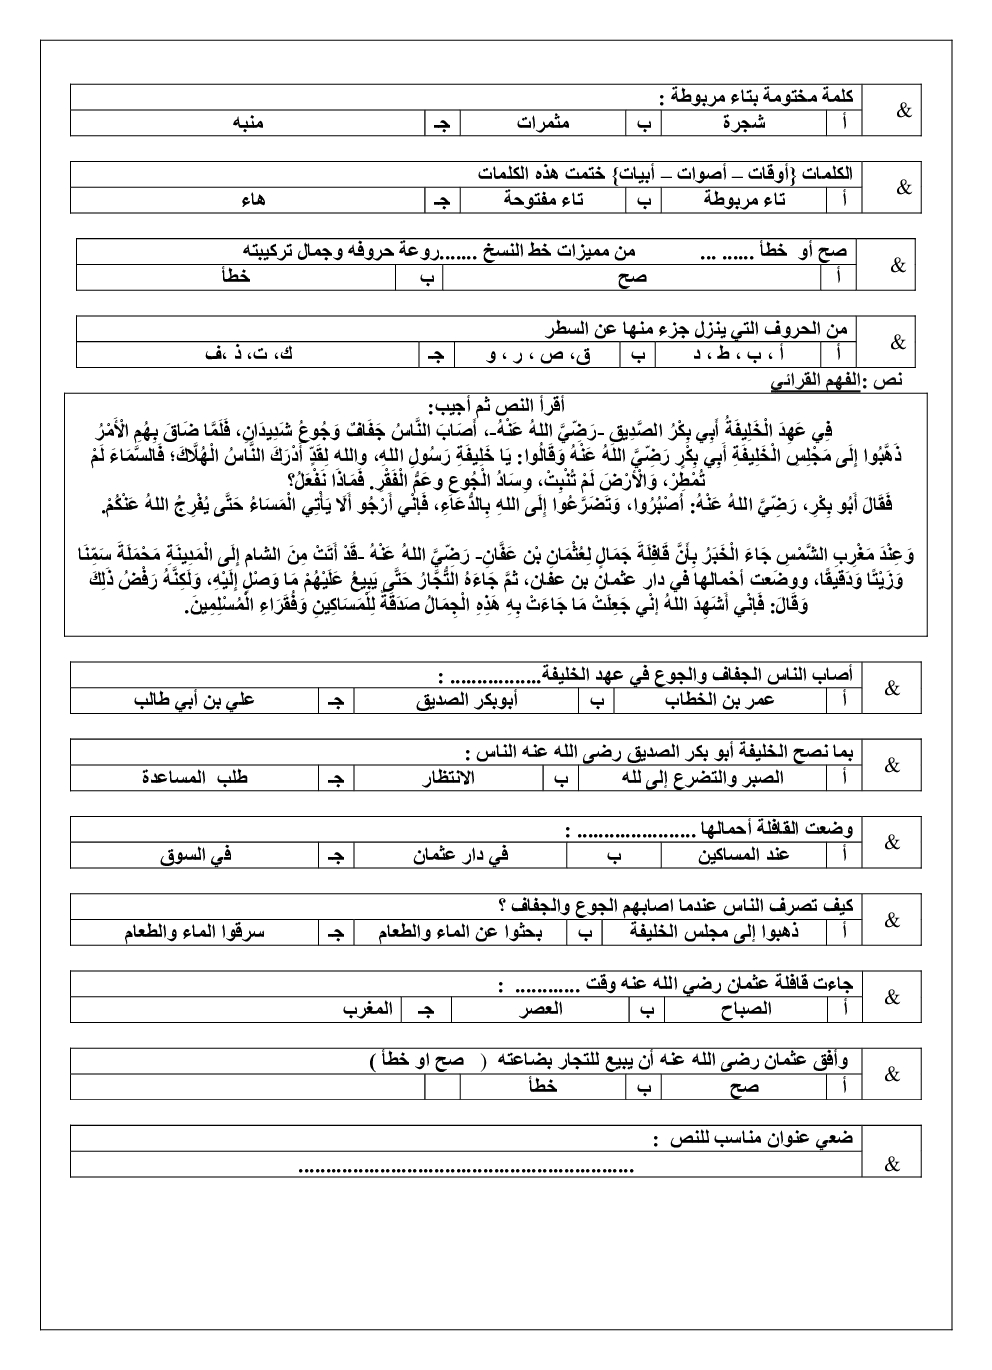 كلمة مختومة بتاء مربوطة :
&
أ شجرة ب مثمرات جـ منبه
الكلمات {أوقات – أصوات – أبيات} ختمت هذه الكلمات
&
أ تاء مربوطة ب تاء مفتوحة جـ هاء
صح أو خطأ ...... ... من مميزات خط النسخ .......روعة حروفه وجمال تركيبته
&
أ صح ب خطأ
من الحروف التي ينزل جزء منها عن السطر
&
أ أ ، ب ، ط ، د ب ق، ص ، ر ، و جـ ك، ت، ذ ،ف
نص :الفهم القرائي
أقرأ النص ثم أجيب:
فِي عَهِدَ الْخَلِيفَةُ أَبِي بِكْرُ الصَّدِيقِ -رَضِّيَّ اللهُ عَنْهُ-، أَصَابَ النَّاسُ جَفَافٌ وَجُوعُ شَدِيدَانِ، فَلَمَّا ضَاقَ بِهُمِ الْأَمْرُ
ذَهَّبُوا إلَى مَجْلِسِ الْخَلِيفَةِ أَبِي بِكْرٍ رَضِّيَّ اللهُ عَنْهُ وَقَالُوا: يَا خَلِيفَةِ رَسُولِ اللهِ، والله لِقَدٍّ أَدْرَكَ النَّاسُ الْهُلَّاكَ؛ فَالسَّمَاءَ لَمْ
تُمْطِرْ، وَالْأَرْضَ لَمْ تُنْبِتْ، وِسَادُ الْجُوعِ وعَمُّ الْفَقْرِ. فَمَاذَا نَفْعَلُ؟
فَقَالَ أَبُو بِكْرِ، رَضِّيَّ اللهُ عَنْهُ: أَصْبُرُوا، وَتَضَرَّعُوا إِلَى اللهِ بِالدُّعَاءِ، فَإِنِّي أَرْجُو أَلَّا يَأْتِي الْمَسَاءُ حَتَّى يُفْرِجُ اللهُ عَنْكُمْ.
وَعِنْدَ مَغْرِبِ الشَّمْسِ جَاءَ الْخَبَرُ بِأَنَّ قَافِلَةَ جَمَالٍ لِعُثْمَانِ بْنِ عَفَّانٍ- رَضِّيَّ اللهُ عَنْهُ -قَدْ أَتَتْ مِنَ الشام إِلَى الْمَدِينَةِ مَحْمَلَةَ سَمِّنَا
وَزَيْتًا وَدَقِيقًا، ووضَعت أحْمالها في دار عثمان بن عفان، ثمَّ جَاءَهُ التُّجَّارُ حَتَّى يَبِيعُ عَلَيْهُمْ مَا وَصْلٍ إِلَيْهِ، وَلَكِنَّهُ رَفْضُ ذَلِكَ
وَقَالَ: فَإِنِّي أَشَهِدَ اللهُ إِنِّي جَعِلَتْ مَا جَاءَتْ بِهِ هَذِهِ الْجِمَالُ صَدَقَةً لِلْمَسَاكِينِ وَفُقَرَاءِ الْمُسْلِمِينَ.
أصاب الناس الجفاف والجوع في عهد الخليفة................. :
&
أ عمر بن الخطاب ب أبوبكر الصديق جـ علي بن أبي طالب
بما نصح الخليفة أبو بكر الصديق رضي الله عنه الناس :
&
أ الصبر والتضرع إلى لله ب الانتظار جـ طلب المساعدة
وضعت القافلة أحمالها ...................... :
&
أ عند المساكين ب في دار عثمان جـ في السوق
كيف تصرف الناس عندما اصابهم الجوع والجفاف ؟
&
أ ذهبوا إلى مجلس الخليفة ب بحثوا عن الماء والطعام جـ سرقوا الماء والطعام
جاءت قافلة عثمان رضي الله عنه وقت ............ :
&
أ الصباح ب العصر جـ المغرب
وأفق عثمان رضى الله عنه أن يبيع للتجار بضاعته ( صح او خطأ )
&
أ صح ب خطأ
ضعي عنوان مناسب للنص :
&
..............................................................